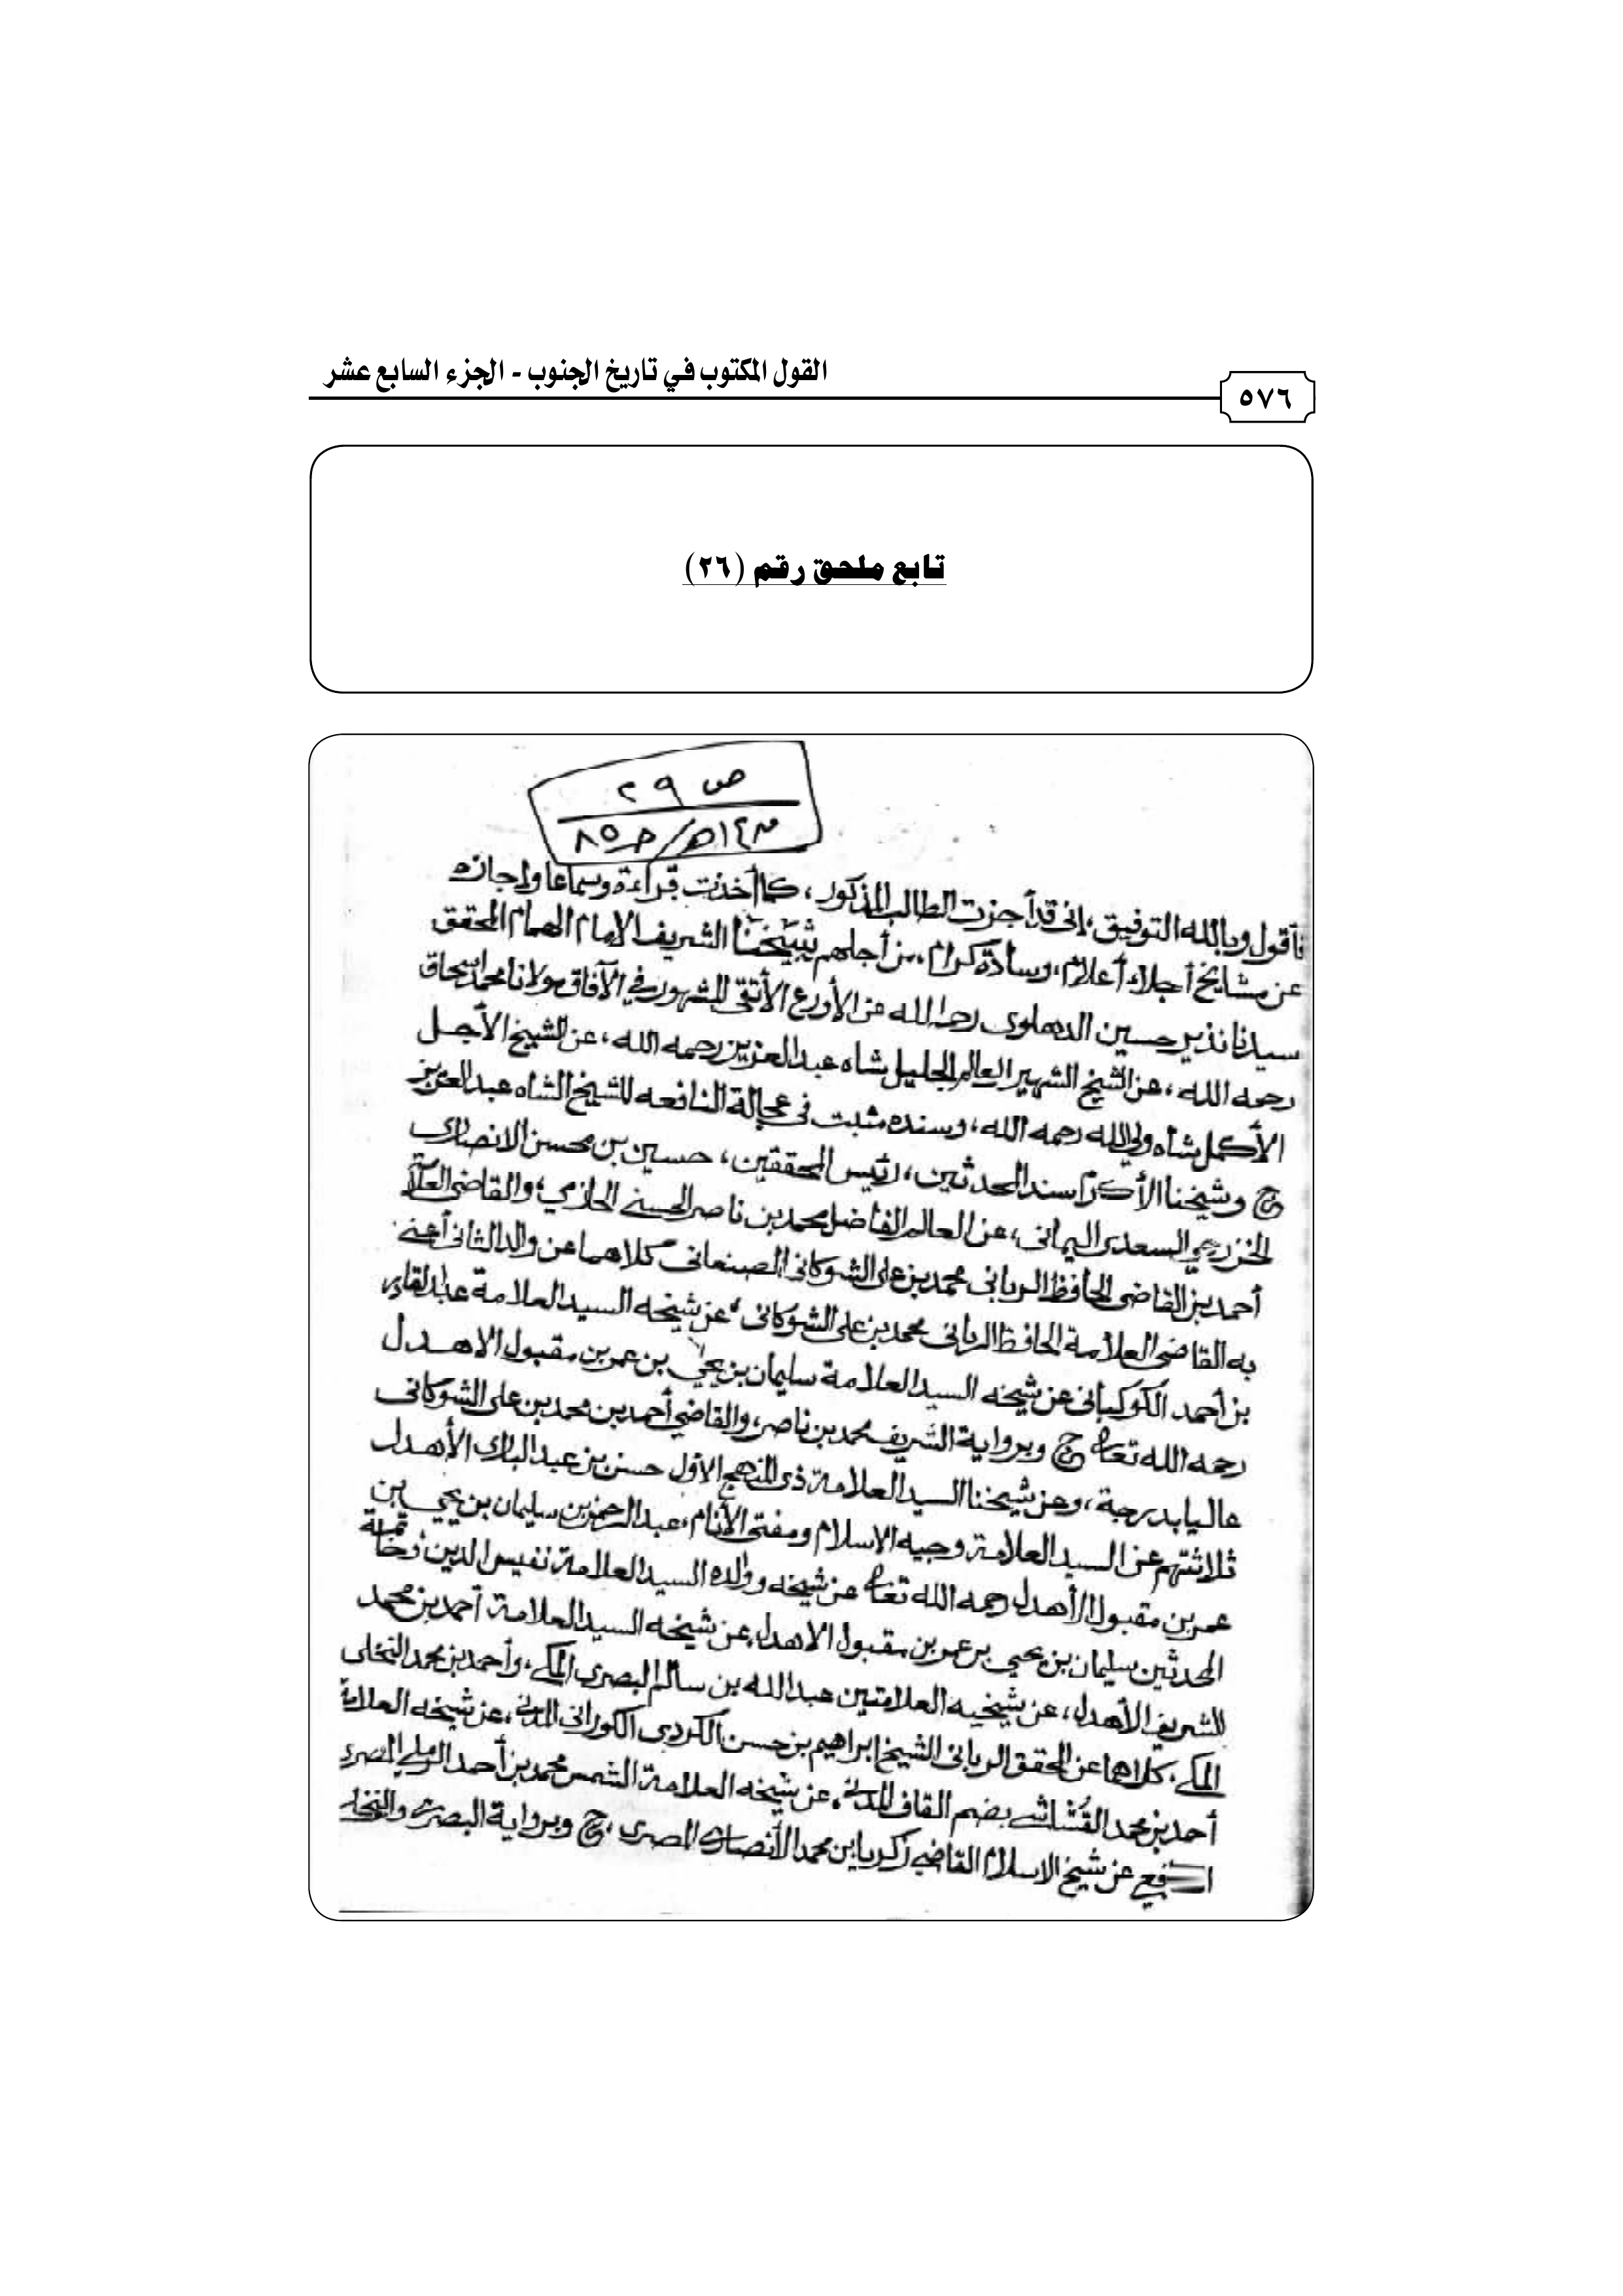 القول المكتوب في تاريخ الجنوب - الجزء السابع عشر
٥٧٦
تابع ملحق رقم (٢٦)
ص ٢٩
فأقول وبالله التوفيق، إني قد أجزت الطالب المذكور، كما أخذت قراءة وسماعا وإجازة
عن مشايخ أجلاء أعلام، وسادة كرام، من أجلهم شيخنا الشريف الإمام الهمام المحقق
سيدنا نذير حسين الدهلوى رحمه الله عن الأورع الأتقى المشهور في الآفاق مولانا محمد اسحاق
رحمه الله، عن الشيخ الشهير العالم الجليل شاه عبد العزيز رحمه الله، عن الشيخ الأجل
الأكمل شاه ولي الله رحمه الله، وسنده مثبت في عجالة النافعه للشيخ الشاه عبد العزيز
ح وشيخنا الأكرم سند المحدثين، رئيس المحققين، حسين بن محسن الانصارى
الخزرجي السعدى اليمانى، عن العالم الفاضل محمد بن ناصر الحسنى الحازمي، والقاضى العلامة
أحمد بن القاضى الحافظ الربانى محمد بن على الشوكانى الصنعانى كلاهما عن والد الثانى أعنى
به القاضى العلامة الحافظ الربانى محمد بن على الشوكانى، عن شيخه السيد العلامة عبد القادر
بن أحمد الكوكبانى عن شيخه السيد العلامة سليمان بن يحيى بن عمر بن مقبول الاهدل
رحمه الله تعالى ح وبرواية الشريف محمد بن ناصر، والقاضي أحمد بن محمد بن على الشوكانى
عاليا بدرجة، وعن شيخنا السيد العلامة ذى المنهج الاول حسن بن عبد البارى الأهدل
ثلاثتهم عن السيد العلامة وجيه الاسلام ومفتى الأنام، عبد الرحمن بن سليمان بن يحيى بن
عمر بن مقبول الأهدل رحمه الله تعالى عن شيخه ووالده السيد العلامة نفيس الدين وخاتمة
المحدثين سليمان بن يحيى بن عمر بن مقبول الاهدل، عن شيخه السيد العلامة أحمد بن محمد
الشريف الأهدل، عن شيخيه العلامتين عبد الله بن سالم البصرى المكى، وأحمد بن محمد النخلى
المكى، كلاهما عن المحقق الربانى الشيخ ابراهيم بن حسن الكردى الكورانى المدنى، عن شيخه العلامة
أحمد بن محمد القُشاشى بضم القاف المدنى، عن شيخه العلامة الشمس محمد بن أحمد الرملي المصرى
عن شيخ الاسلام القاضى زكريا ابن محمد الأنصارى المصرى، ح وبرواية البصرى والنخلى